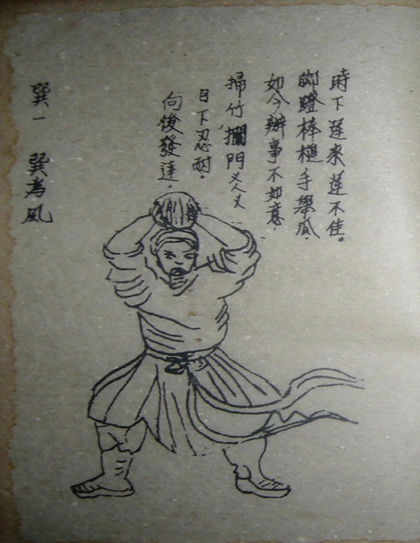 時下運來運不佳。
腳蹬棒槌手舉瓜.
如今辦事不如意.
掃竹攔門
目下忍耐.
向後發達.
巽一 巽為風